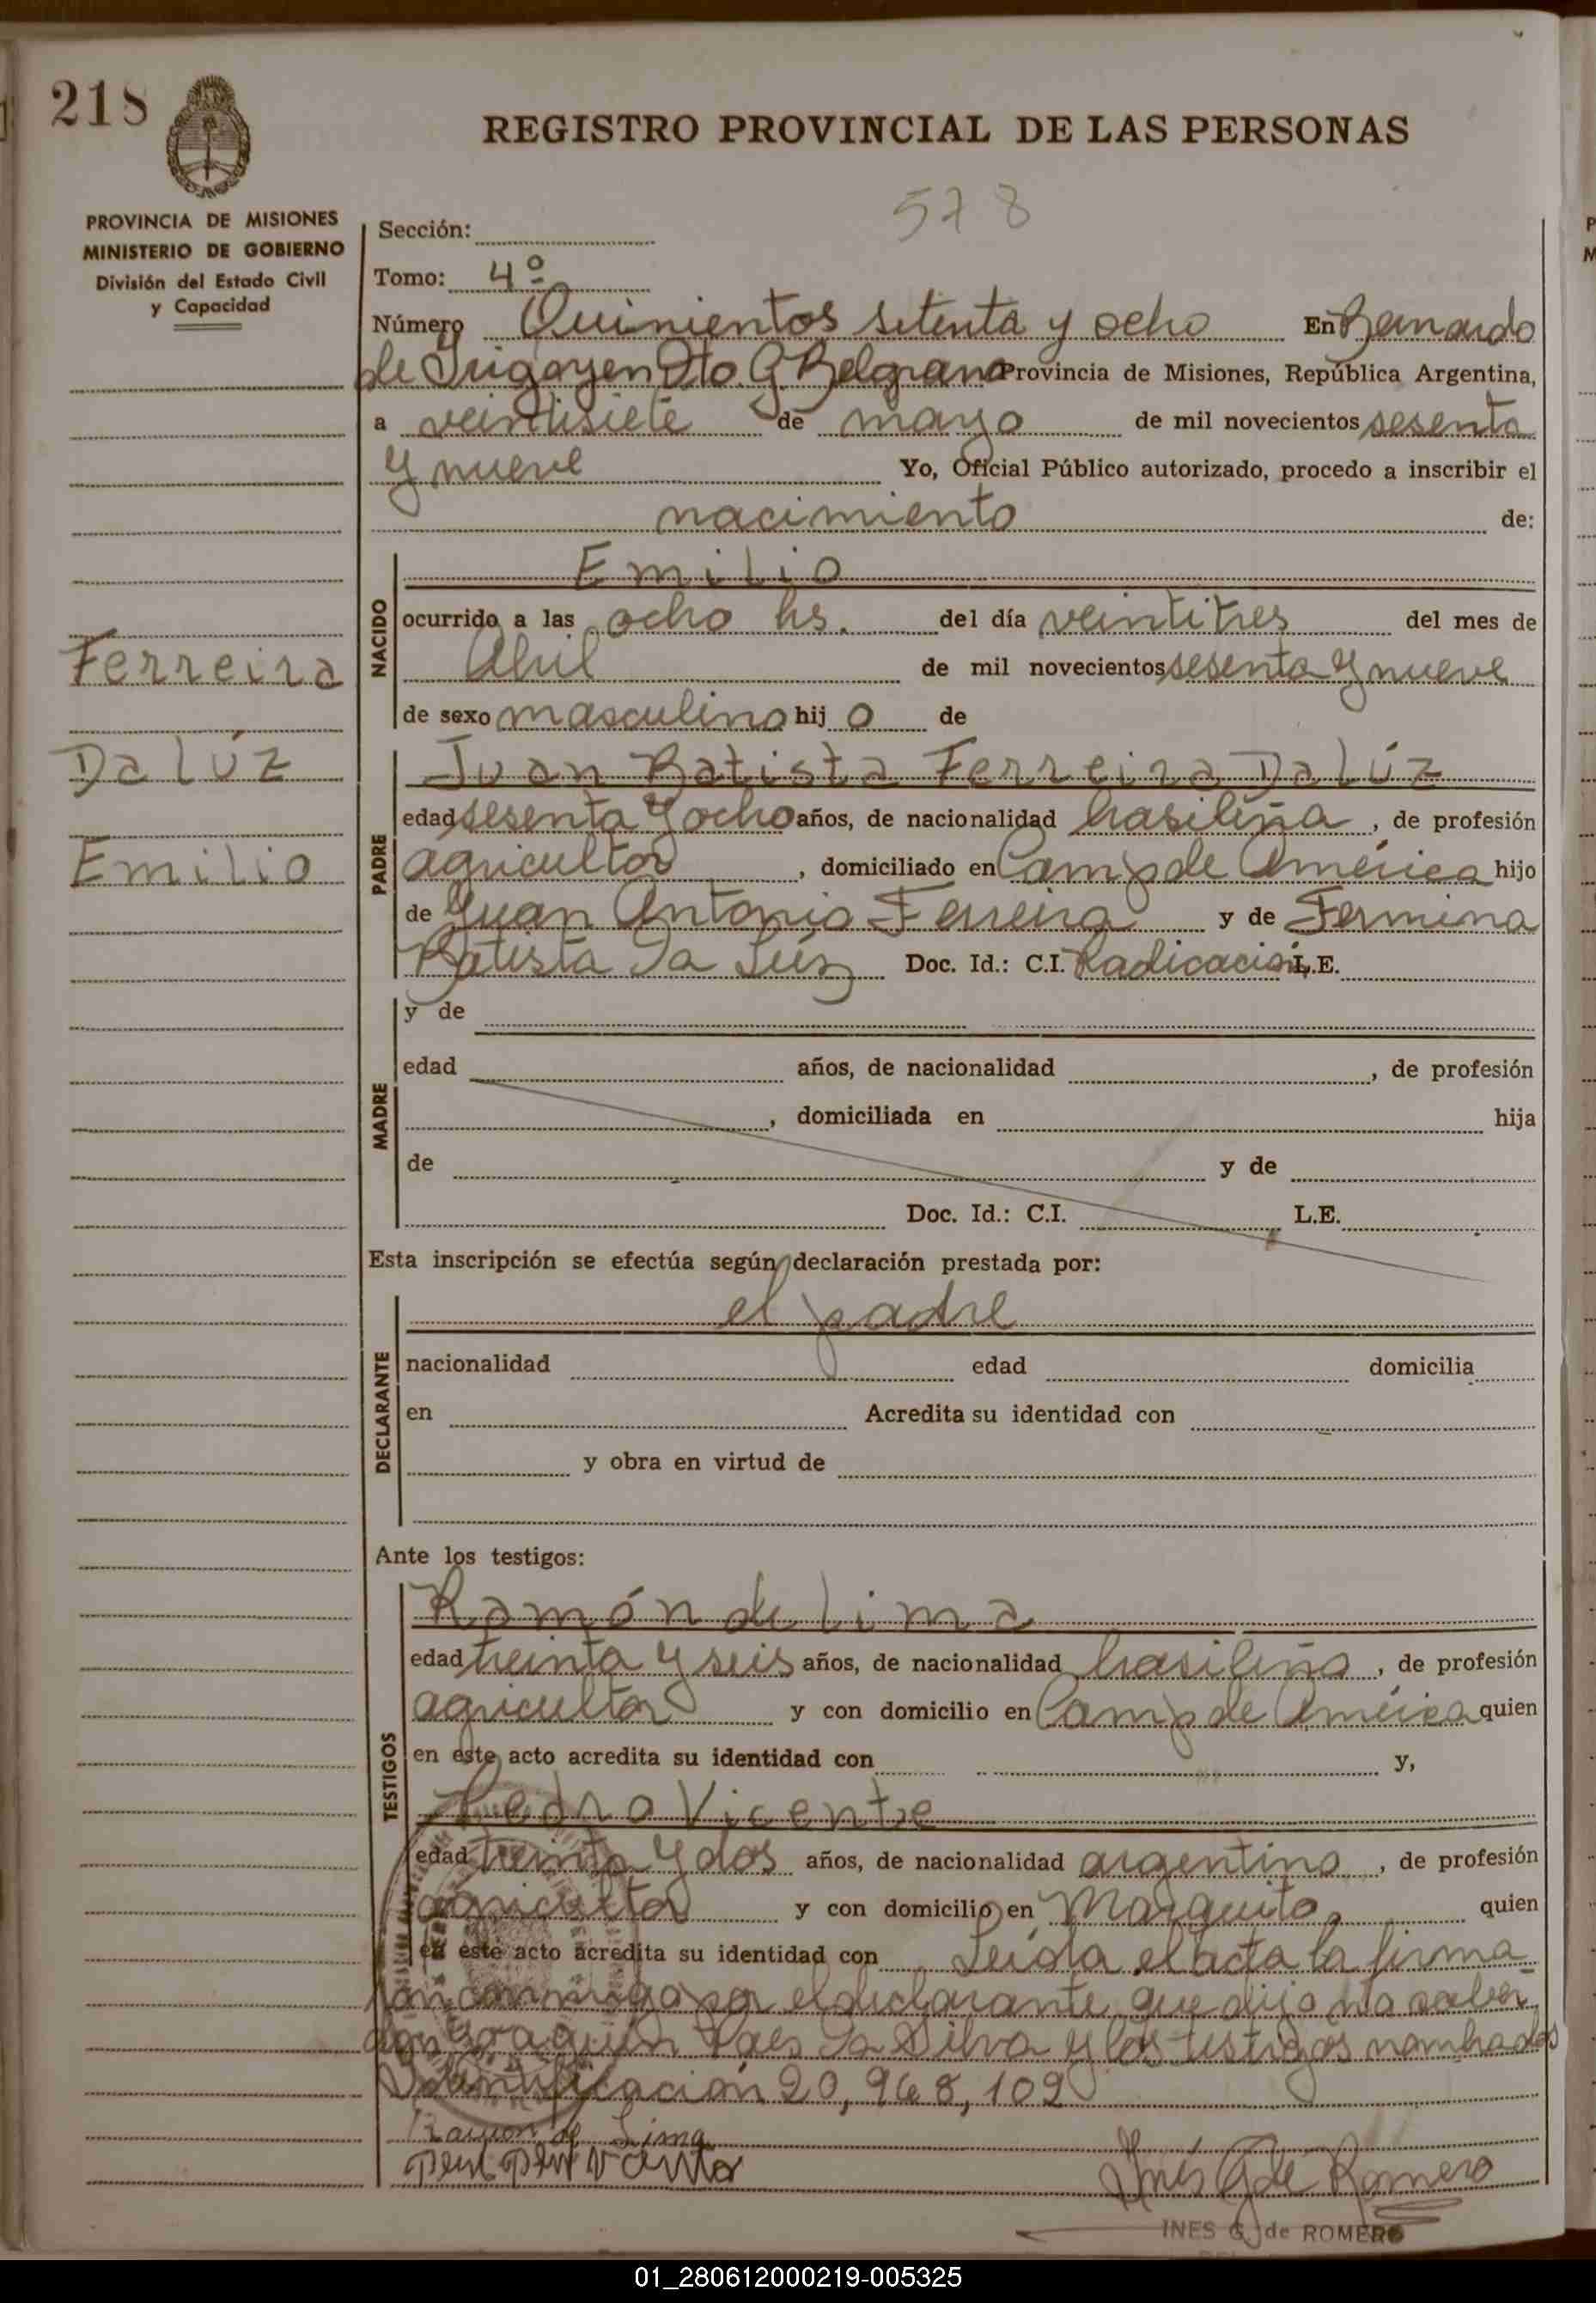 218
REGISTRO PROVINCIAL DE LAS PERSONAS
578
PROVINCIA DE MISIONES
MINISTERIO DE GOBIERNO
División del Estado Civil
y Capacidad
Sección:
Tomo: 4º
Número Quinientos setenta y ocho En Bernardo
de Irigoyen Dto. G. Belgrano Provincia de Misiones, República Argentina,
a veintisiete de mayo de mil novecientos sesenta
y nueve Yo, Oficial Público autorizado, procedo a inscribir el
nacimiento de:
NACIDO
Emilio
ocurrido a las ocho hs. del día veintitres del mes de
Abril de mil novecientos sesenta y nueve
de sexo masculino hij o de
Ferreira
Da Lúz
Emilio
PADRE
Juan Batista Ferreira Da Lúz
edad sesenta y ocho años, de nacionalidad brasileña, de profesión
agricultor, domiciliado en Camp de América hijo
de Juan Antonio Ferreira y de Fermina
Batista Da Lúz Doc. Id.: C.I. Radicación L.E.
MADRE
y de
edad años, de nacionalidad , de profesión
, domiciliada en hija
de y de
Doc. Id.: C.I. L.E.
Esta inscripción se efectúa según declaración prestada por:
DECLARANTE
el padre
nacionalidad edad domicilia
en Acredita su identidad con
y obra en virtud de
Ante los testigos:
TESTIGOS
Ramón de Lima
edad treinta y seis años, de nacionalidad brasileña, de profesión
agricultor y con domicilio en Camp de América quien
en este acto acredita su identidad con y,
Pedro Vicente
edad treinta y dos años, de nacionalidad argentino, de profesión
agricultor y con domicilio en Marquito, quien
en este acto acredita su identidad con Leida el acta la firma
ron conmigo por el declarante que dijo no saber
don Joaquín Paes Da Silva y los testigos nombrados
Identificación 20,968,109
Ramon de Lima
Inés G de Romero
INES G. de ROMERO
01_280612000219-005325